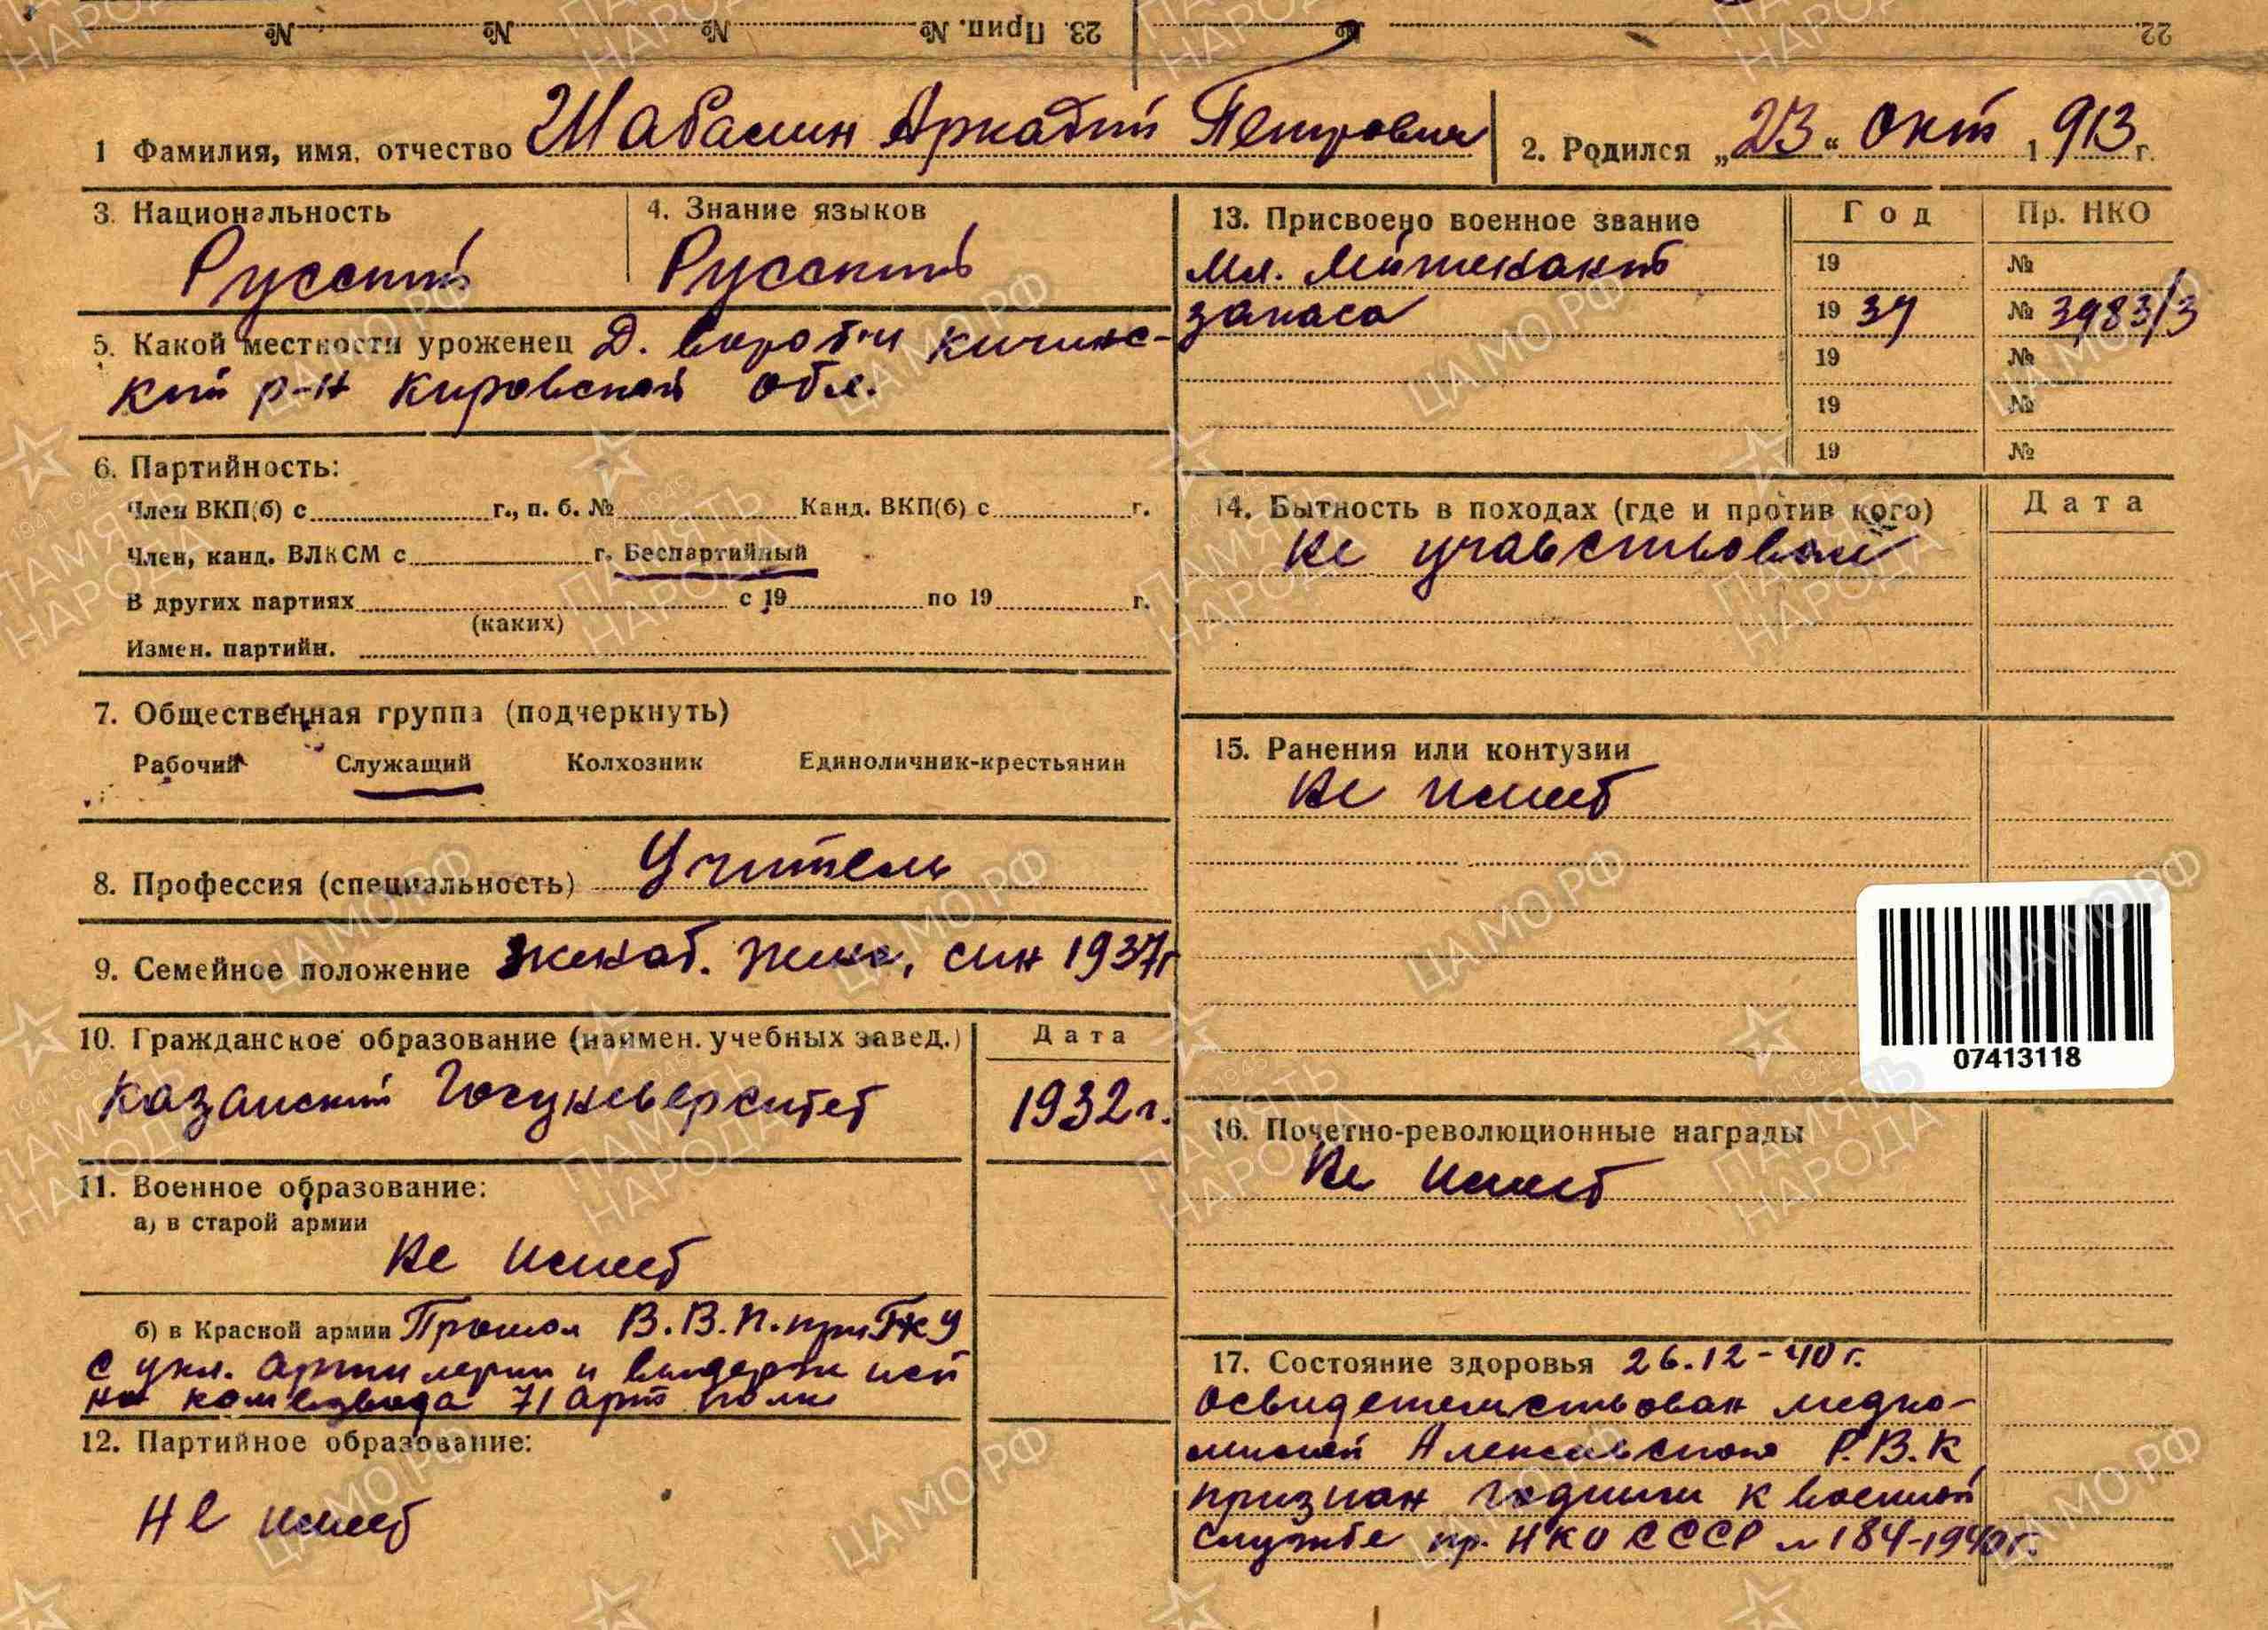 23. Прип. № № № №
№ 22.
1 Фамилия, имя, отчество Шабалин Аркадий Петрович
2. Родился „23“ окт 1913 г.
3. Национальность
Русский
4. Знание языков
Русский
5. Какой местности уроженец Д. кичинс-
кий р-н Кировской обл.
6. Партийность:
Член ВКП(б) с г., п. б. № Канд. ВКП(б) с г.
Член, канд. ВЛКСМ с г. Беспартийный
В других партиях с 19 по 19 г.
(каких)
Измен. партийн.
7. Общественная группа (подчеркнуть)
Рабочий Служащий Колхозник Единоличник-крестьянин
8. Профессия (специальность) Учитель
9. Семейное положение женат. жена, сын 1937г
10. Гражданское образование (наимен. учебных завед.) Дата
Казанский Госуниверситет 1932 г.
11. Военное образование:
а) в старой армии
Не имеет
б) в Красной армии Прошол В.В.П. при ГКУ
с укл. артилерии и выдерж исп
на комвзвода 71 арт полк
12. Партийное образование:
Не имеет
13. Присвоено военное звание Год Пр. НКО
мл. лейтенант 19 №
запаса 19 39 № 3983/3
19 №
19 №
19 №
14. Бытность в походах (где и против кого) Дата
не учавствовал
15. Ранения или контузии
не имеет
07413118
16. Почетно-революционные награды
Не имеет
17. Состояние здоровья 26.12-40 г.
освидетельствован медко-
мисией Р.В.К
признан годным к военной
службе пр. НКО СССР № 184-1940г.
ПАМЯТЬ НАРОДА
1941-1945
ЦАМО.РФ